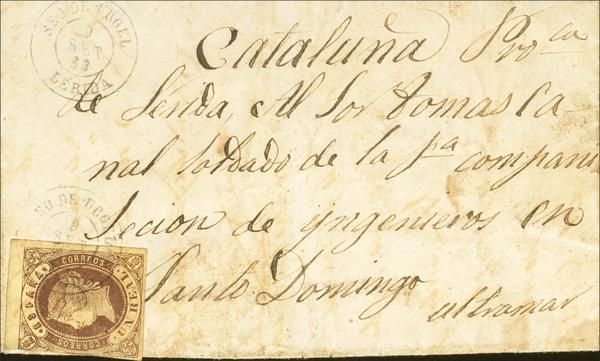 SEO DE URGEL
9
SET
63
LERIDA
Cataluña Pro.ca
de Lerida, Al Sor tomas Ca
nal soldado de la pa compani
Secion de yngenieros en
Santo Domingo
ultramar
EO DE URGE
9
CORREOS
ESPAÑA
UN REAL
CORREOS